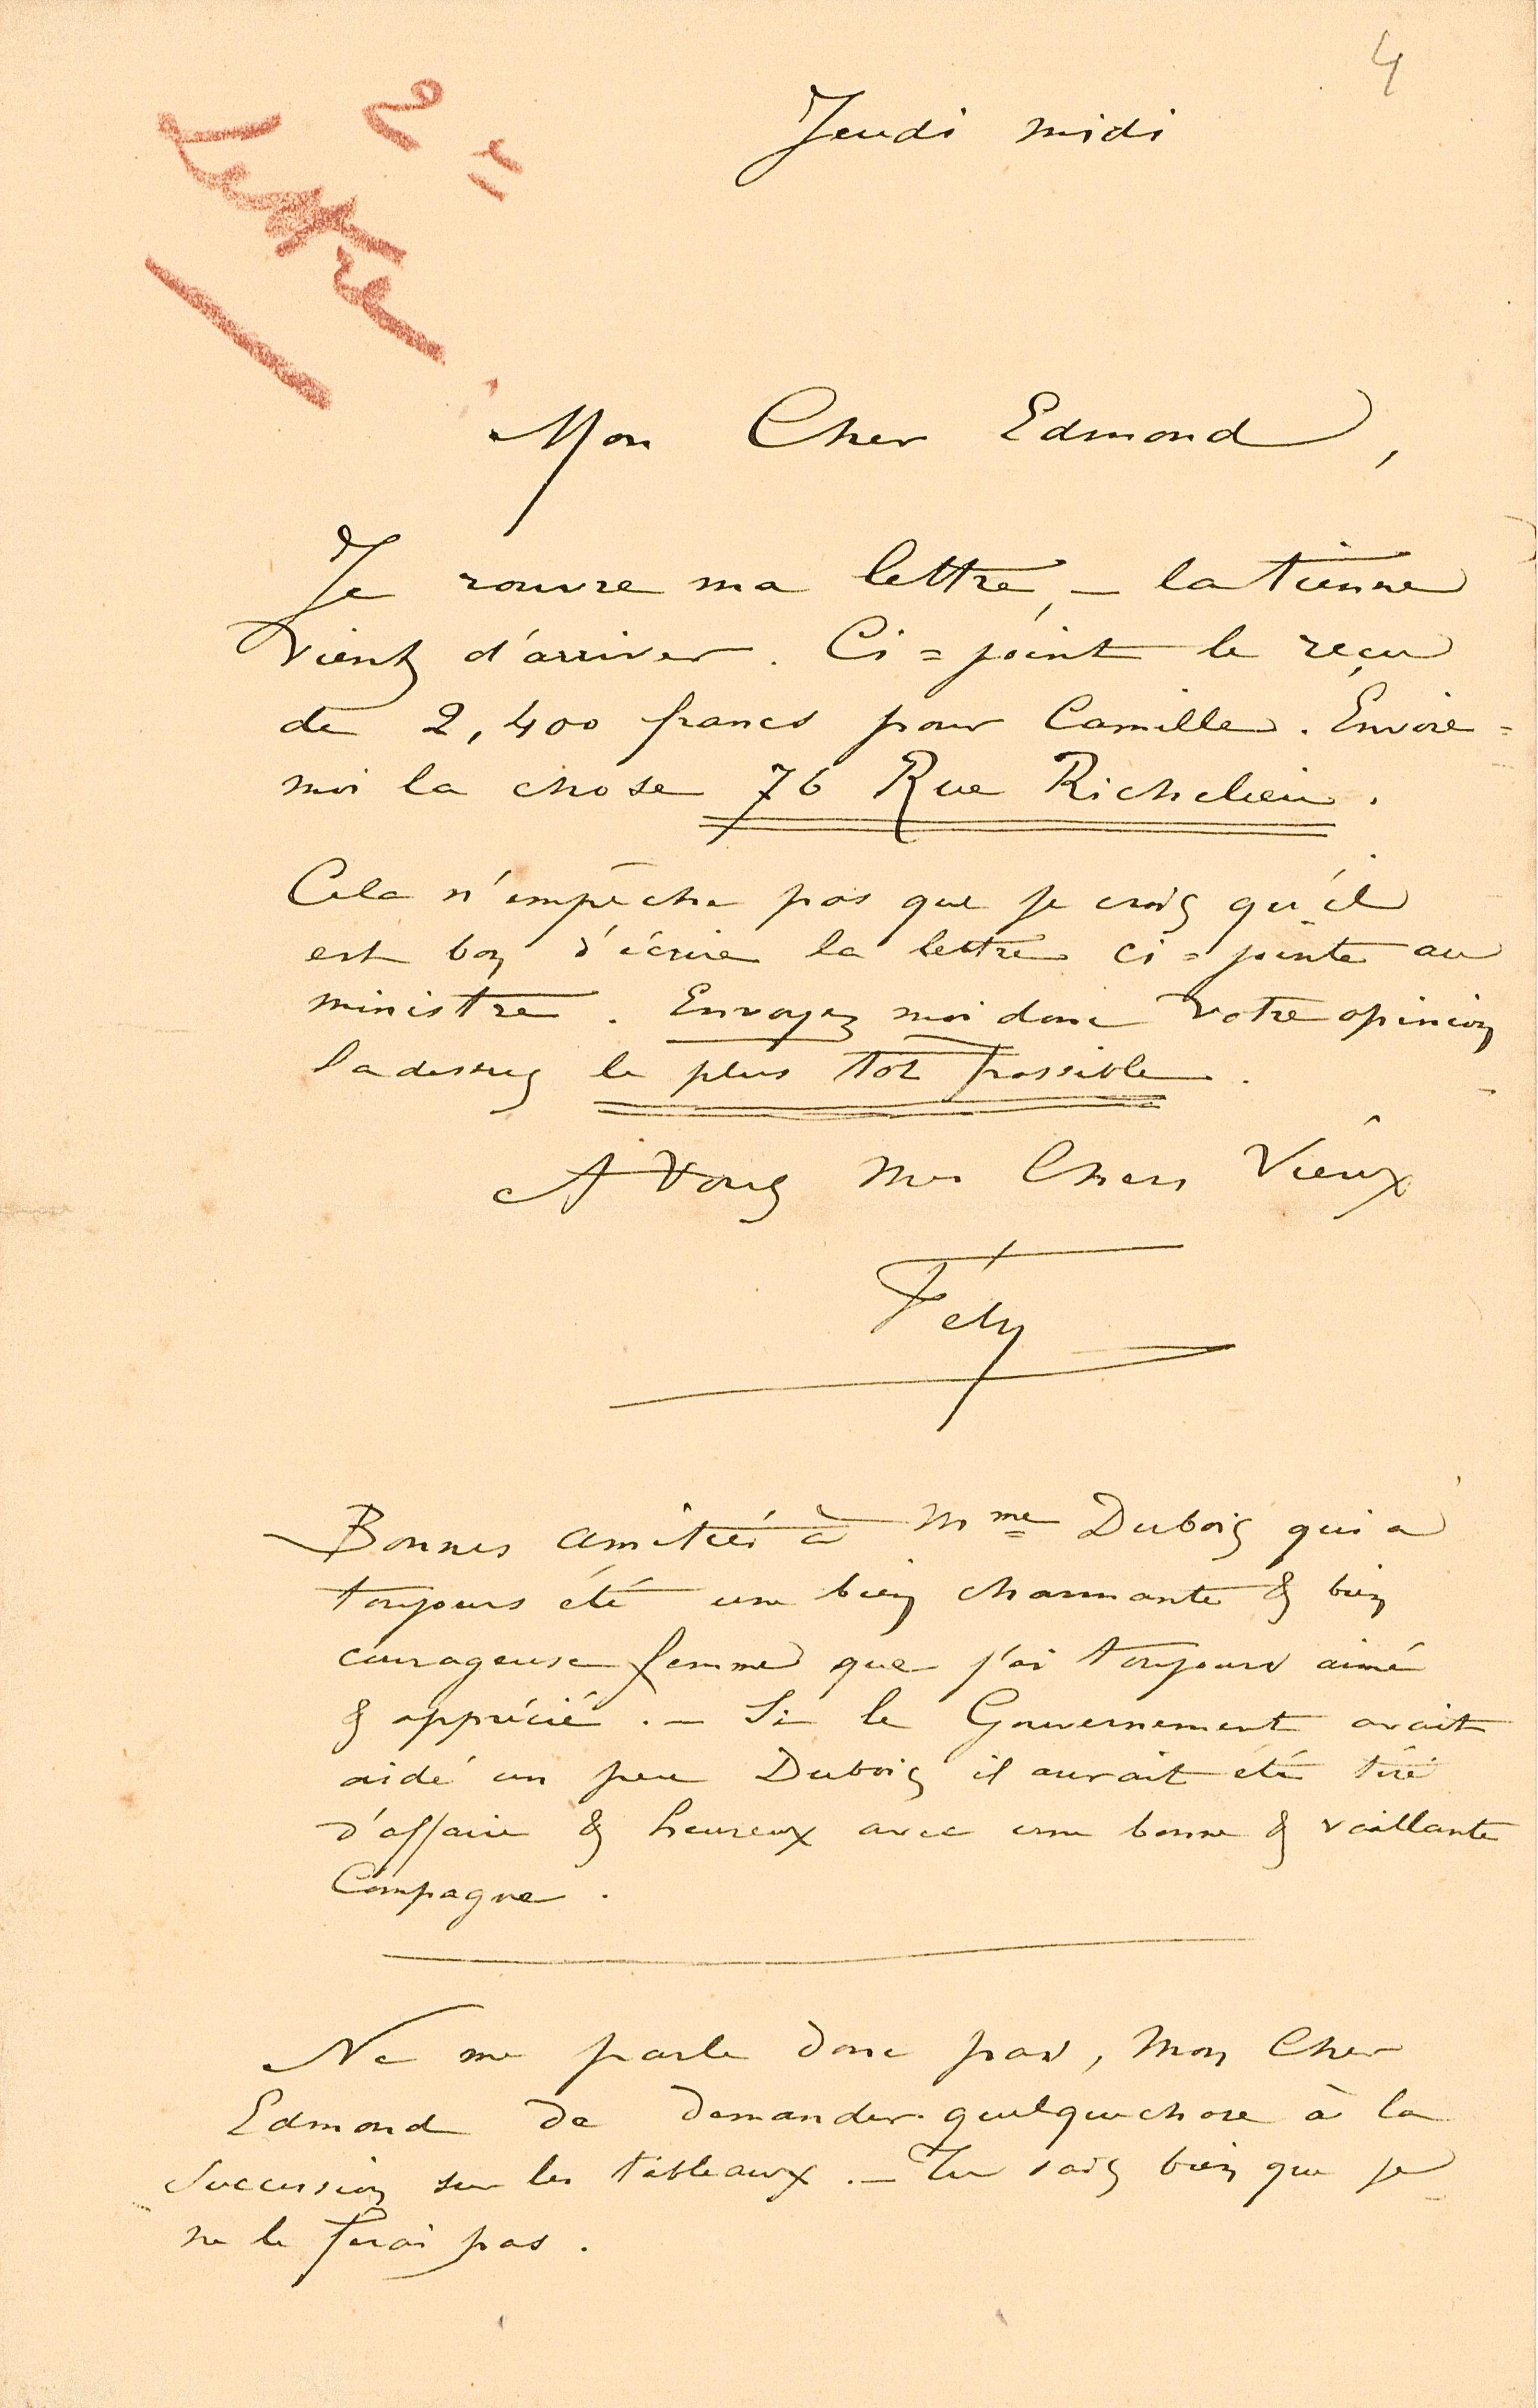 4
2e
Lettre
Jeudi midi
Mon Cher Edmond,
Je rouvre ma lettre, – la tienne
vient d'arriver. Ci=joint le reçu
de 2,400 francs pour Camille. Envoie=
moi la chose 76 Rue Richelieu.
Cela n'empêche pas que je crois qu'il
est bon d'écrire la lettre ci=jointe au
ministre. Envoyez moi donc votre opinion
ladessus le plus tot possible.
A Vous mes Chers Vieux
Fély
Bonnes amitiés à Mme Dubois qui a
toujours été une bien charmante & bien
courageuse femme que j'ai toujours aimé
& apprécié. – Si le Gouvernement avait
aidé un peu Dubois il aurait été tiré
d'affaire & heureux avec une bonne & vaillante
Compagne.
Ne me parle donc pas, Mon Cher
Edmond de demander quelquechose à la
Succession sur les tableaux. – Tu sais bien que je
ne le ferai pas.